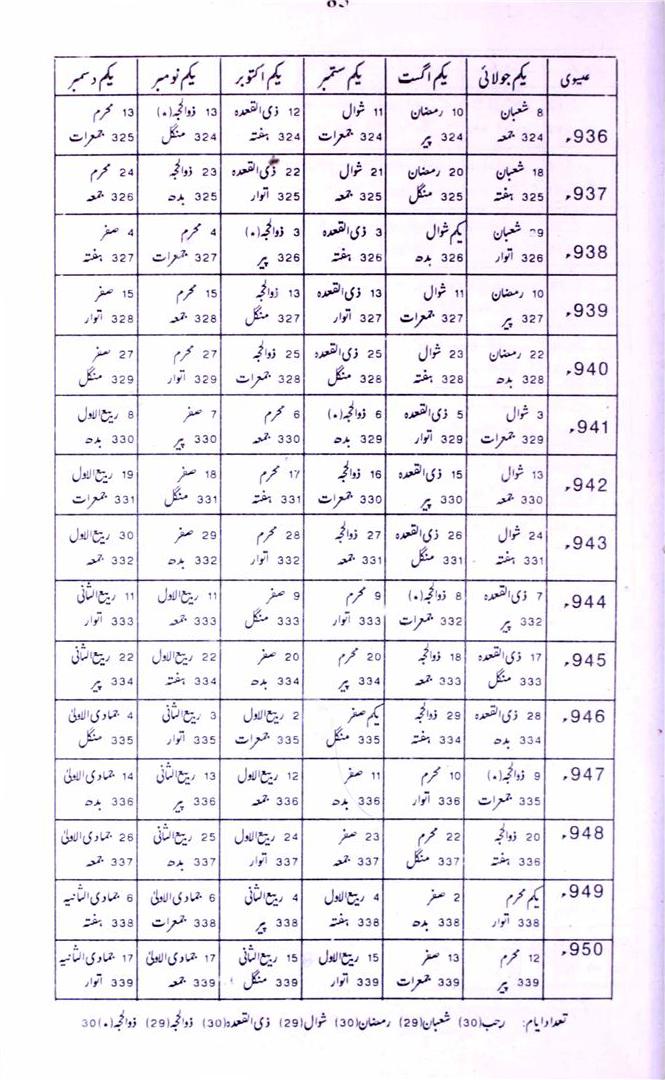 عیسوی یکم جولائی یکم اگست یکم ستمبر یکم اکتوبر یکم نومبر یکم دسمبر
936ء 8 شعبان 10 رمضان 11 شوال 12 ذی القعدہ 13 ذوالحجہ(۰) 13 محرم
324 جمعہ 324 پیر 324 جمعرات 324 ہفتہ 324 منگل 325 جمعرات
937ء 18 شعبان 20 رمضان 21 شوال 22 ذی القعدہ 23 ذوالحجہ 24 محرم
325 ہفتہ 325 منگل 325 جمعہ 325 اتوار 325 بدھ 326 جمعہ
938ء 29 شعبان یکم شوال 3 ذی القعدہ 3 ذوالحجہ(۰) 4 محرم 4 صفر
326 اتوار 326 بدھ 326 ہفتہ 326 پیر 327 جمعرات 327 ہفتہ
939ء 10 رمضان 11 شوال 13 ذی القعدہ 13 ذوالحجہ 15 محرم 15 صفر
327 پیر 327 جمعرات 327 اتوار 327 منگل 328 جمعہ 328 اتوار
940ء 22 رمضان 23 شوال 25 ذی القعدہ 25 ذوالحجہ 27 محرم 27 صفر
328 بدھ 328 ہفتہ 328 منگل 328 جمعرات 329 اتوار 329 منگل
941ء 3 شوال 5 ذی القعدہ 6 ذوالحجہ(۰) 6 محرم 7 صفر 8 ربیع الاول
329 جمعرات 329 اتوار 329 بدھ 330 جمعہ 330 پیر 330 بدھ
942ء 13 شوال 15 ذی القعدہ 16 ذوالحجہ 17 محرم 18 صفر 19 ربیع الاول
330 جمعہ 330 پیر 330 جمعرات 331 ہفتہ 331 منگل 331 جمعرات
943ء 24 شوال 26 ذی القعدہ 27 ذوالحجہ 28 محرم 29 صفر 30 ربیع الاول
331 ہفتہ 331 منگل 331 جمعہ 332 اتوار 332 بدھ 332 جمعہ
944ء 7 ذی القعدہ 8 ذوالحجہ(۰) 9 محرم 9 صفر 11 ربیع الاول 11 ربیع الثانی
332 پیر 332 جمعرات 333 اتوار 333 منگل 333 جمعہ 333 اتوار
945ء 17 ذی القعدہ 18 ذوالحجہ 20 محرم 20 صفر 22 ربیع الاول 22 ربیع الثانی
333 منگل 333 جمعہ 334 پیر 334 بدھ 334 ہفتہ 334 پیر
946ء 28 ذی القعدہ 29 ذوالحجہ یکم صفر 2 ربیع الاول 3 ربیع الثانی 4 جمادی الاولیٰ
334 بدھ 334 ہفتہ 335 منگل 335 جمعرات 335 اتوار 335 منگل
947ء 9 ذوالحجہ(۰) 10 محرم 11 صفر 12 ربیع الاول 13 ربیع الثانی 14 جمادی الاولیٰ
335 جمعرات 336 اتوار 336 بدھ 336 جمعہ 336 پیر 336 بدھ
948ء 20 ذوالحجہ 22 محرم 23 صفر 24 ربیع الاول 25 ربیع الثانی 26 جمادی الاولیٰ
336 ہفتہ 337 منگل 337 جمعہ 337 اتوار 337 بدھ 337 جمعہ
949ء یکم محرم 2 صفر 4 ربیع الاول 4 ربیع الثانی 6 جمادی الاولیٰ 6 جمادی الثانیہ
338 اتوار 338 بدھ 338 ہفتہ 338 پیر 338 جمعرات 338 ہفتہ
950ء 12 محرم 13 صفر 15 ربیع الاول 15 ربیع الثانی 17 جمادی الاولیٰ 17 جمادی الثانیہ
339 پیر 339 جمعرات 339 اتوار 339 منگل 339 جمعہ 339 اتوار
تعداد ایام: رجب(30) شعبان(29) رمضان(30) شوال(29) ذی القعدہ(30) ذوالحجہ(29) ذوالحجہ(۰)30